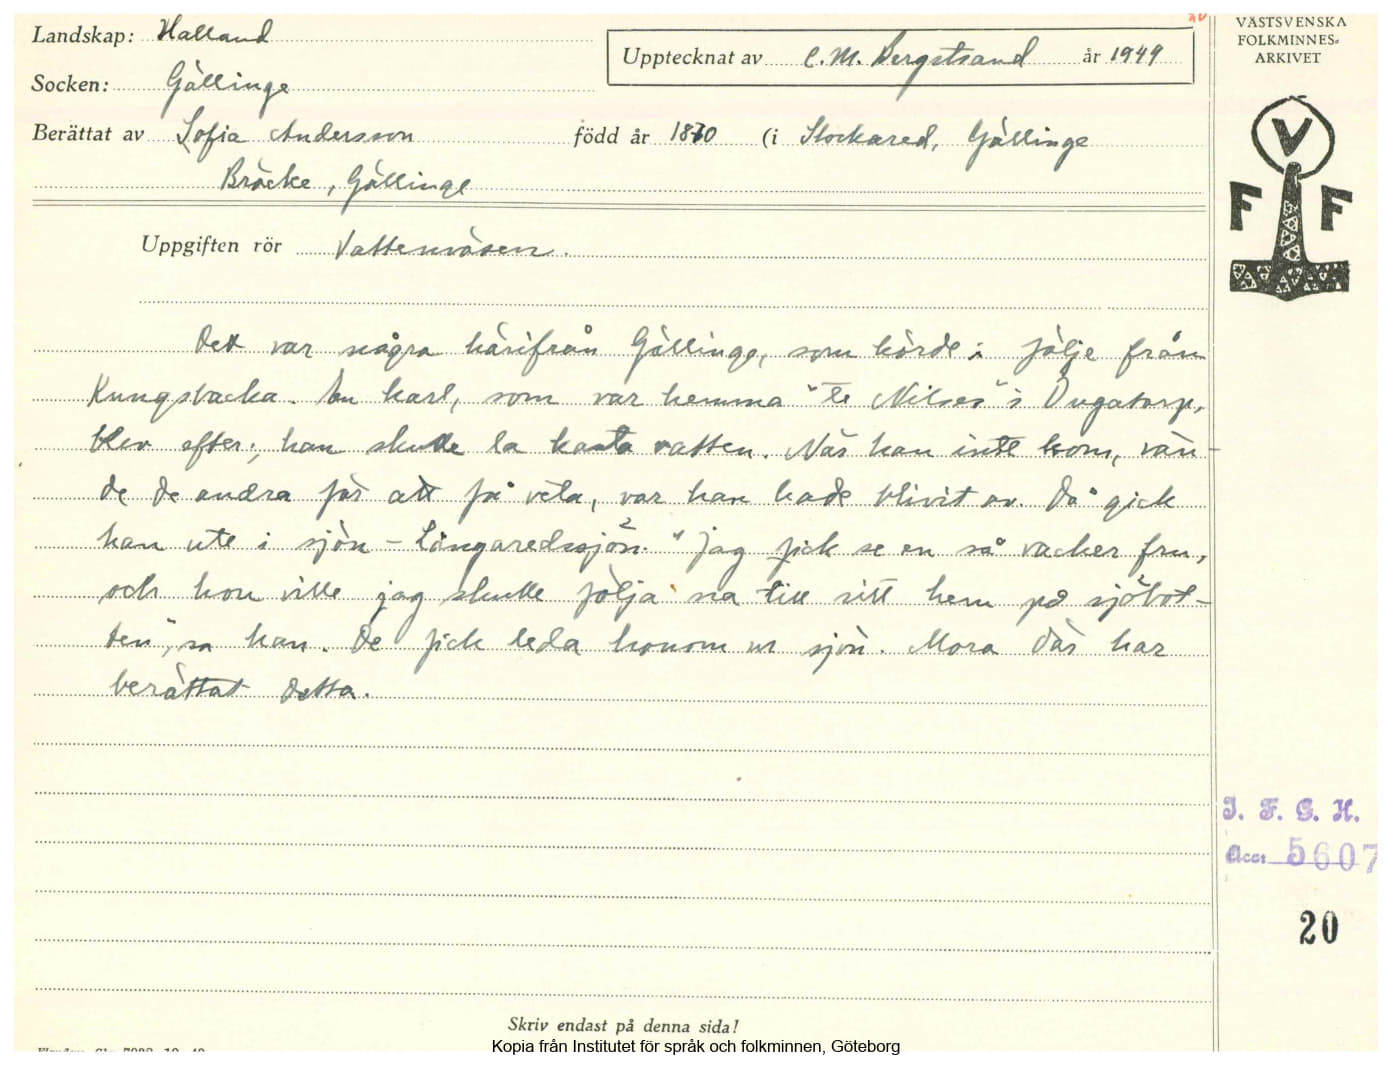 Landskap: Halland
Socken: Gällinge
Upptecknat av C. M. Bergstrand år 1949
Berättat av Sofia Andersson född år 1870 (i Stockared, Gällinge
Bräcke, Gällinge
Uppgiften rör Vattenväsen.
Det var några härifrån Gällinge, som körde i följe från
Kungsbacka. En karl, som var hemma "te Nilses" i Öugatorp,
blev efter; han skulle la kasta vatten. När han inte kom, vän-
de de andra för att få veta, var han hade blivit av. Då gick
han ute i sjön - Långaredssjön. "Jag fick se en så vacker fru,
och hon ville jag skulle följa na till sitt hem på sjöbot-
ten", sa han. De fick leda honom ur sjön. Mora där har
berättat detta.
Skriv endast på denna sida!
Kopia från Institutet för språk och folkminnen, Göteborg
VÄSTSVENSKA
FOLKMINNES-
ARKIVET
V
F F
I. F. G. H.
Acc: 5607
20